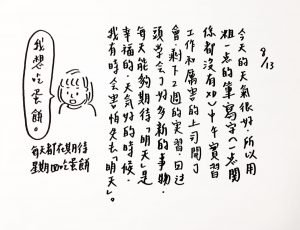 8/13
今天的天氣很好,所以用
粗一点的筆寫字(一点関
係都沒有XD)中午實習
工作和厲害的上司開了
會,剩下2週的實習,回过
頭学会了好多新的事物,
每天能夠期待「明天」是
幸福的,天氣好的時候,
我有時会害怕失去「明天」。
我想吃蛋餅。
每天都在期待
星期四吃蛋餅